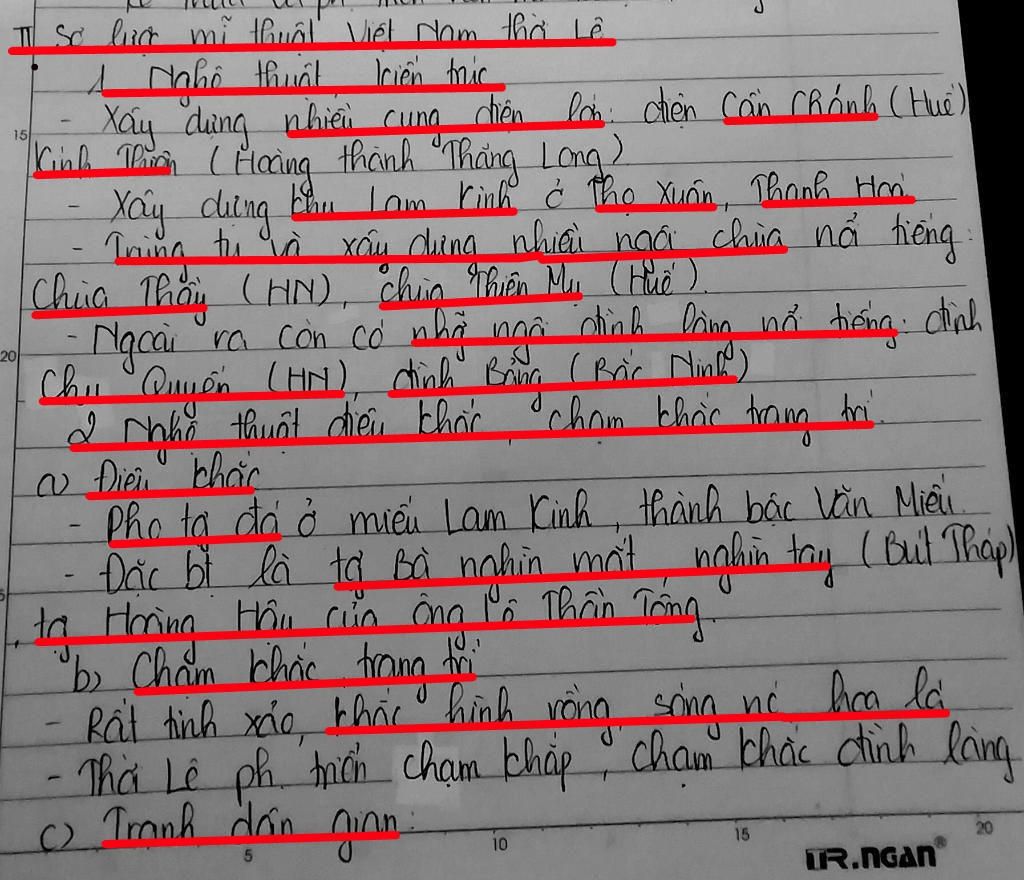 II Sơ lược mĩ thuật Việt Nam thời Lê
1 Nghệ thuật kiến trúc
- Xây dựng nhiều cung điện lớn: điện Cần Chánh (Huế)
15 Kính Thiên (Hoàng thành Thăng Long)
- Xây dựng khu Lam Kinh ở Thọ Xuân, Thanh Hoá
- Trùng tu và xây dựng nhiều ngôi chùa nổ tiếng:
Chùa Thầy (HN), chùa Thiên Mụ (Huế).
- Ngoài ra còn có nhữ ngô đình làng nổ tiếng: đình
20 Chu Quyến (HN), đình Bảng (Bắc Ninh)
2 Nghệ thuật điêu khắc, chạm khắc trang trí.
a) Điêu khắc
- Pho tg đá ở miếu Lam Kinh, thành bậc Văn Miếu.
- Đặc bt là tg Bà nghìn mắt nghìn tay (Bút Tháp)
, tg Hoàng Hậu của ông Lê Thần Tông.
b) Chạm khắc trang trí
- Rất tinh xảo, khắc hình rồng, sóng nc hoa lá
- Thời Lê ph. triển chạm khắp, chạm khắc đình làng
c) Tranh dân gian:
5 10 15 20
TR.NGAN®